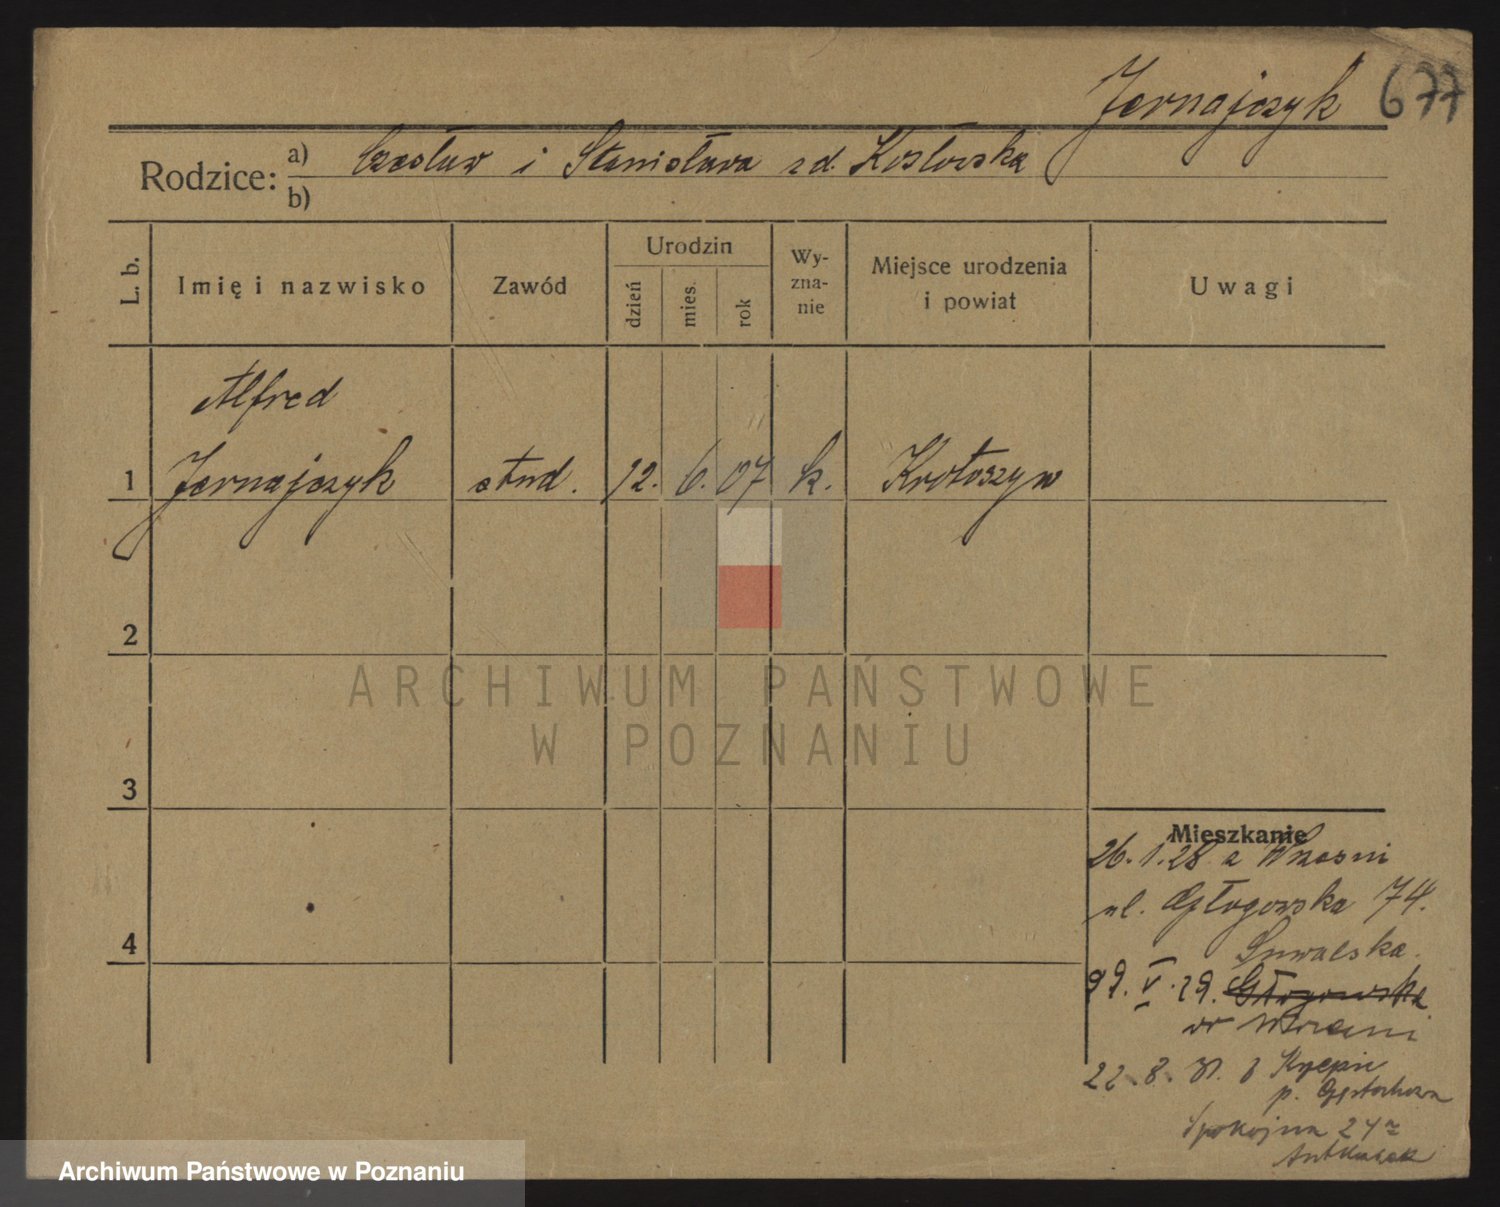 Jernajczyk 677
Rodzice: a) Czesław i Stanisława zd. Kozłowska
b)
L. b. Imię i nazwisko Zawód Urodzin dzień mies. rok Wy-zna-nie Miejsce urodzenia i powiat Uwagi
Alfred
1 Jernajczyk stud. 12. 6. 07 k. Krotoszyn
2
3
4
Mieszkanie
26. 1. 28 z Wrześni
ul. Głogowska 74.
Suwalska.
V. 29. Głogowska
22. 8. 31. z
p.
Spokojna 24
ARCHIWUM PAŃSTWOWE
W POZNANIU
Archiwum Państwowe w Poznaniu